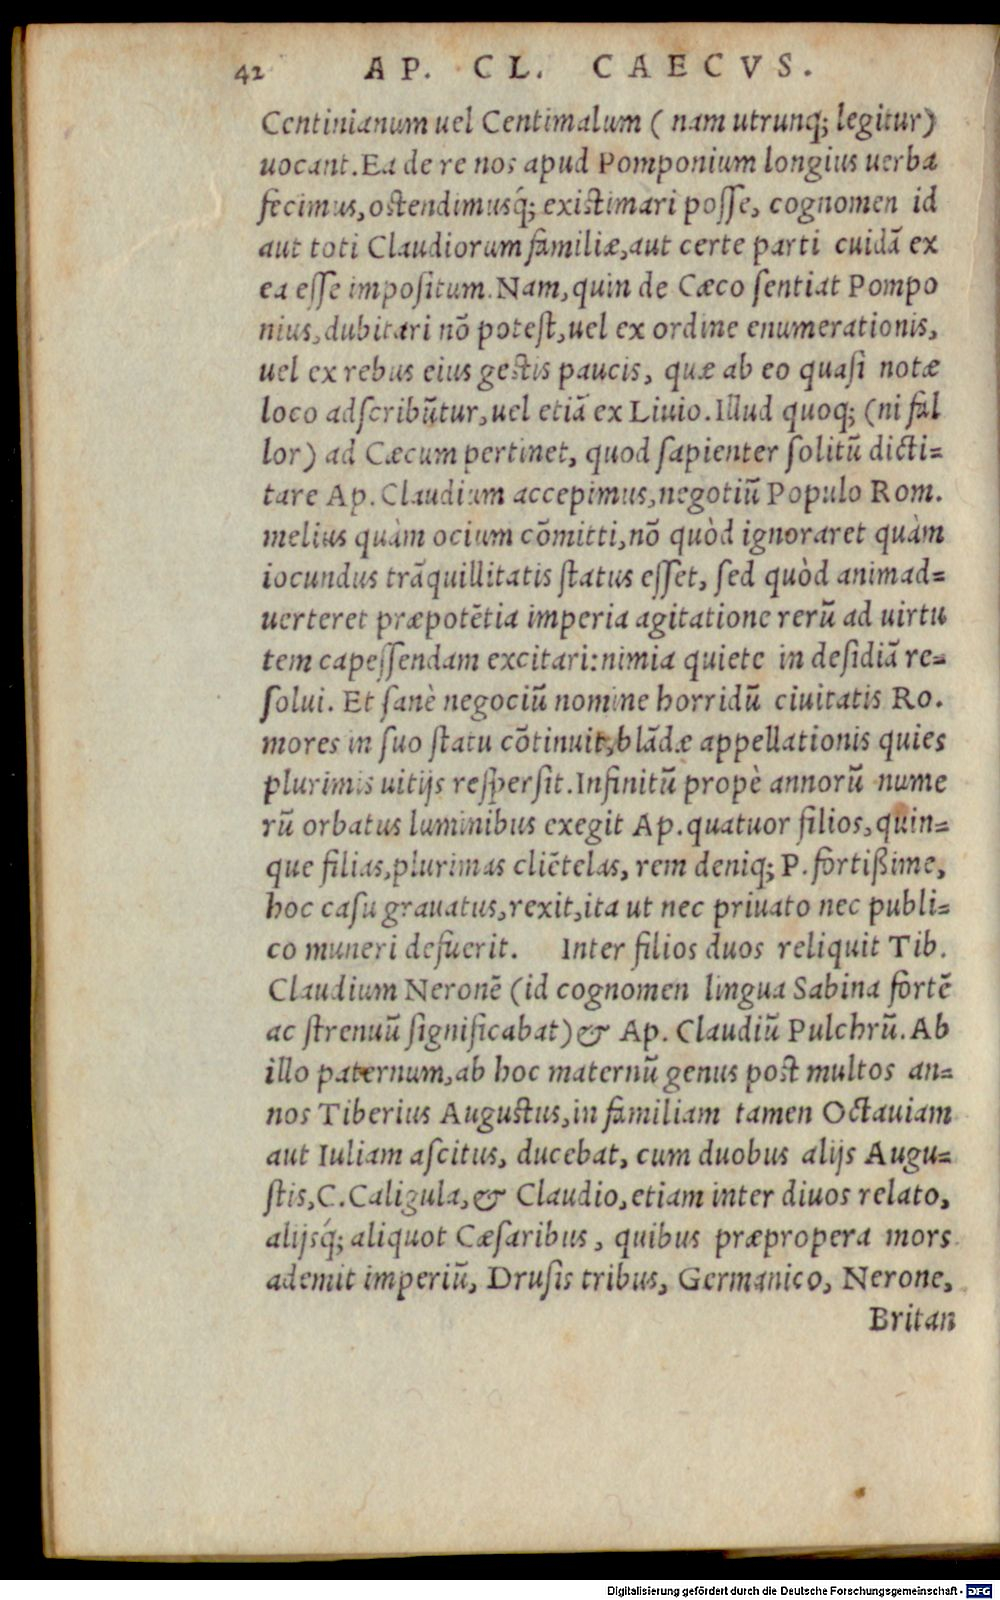 42 AP. CL. CAECVS.
Centinianum uel Centimalum ( nam utrunq; legitur)
uocant. Ea de re nos apud Pomponium longius uerba
fecimus, ostendimusq́; existimari posse, cognomen id
aut toti Claudiorum familiæ, aut certe parti cuidã ex
ea esse impositum. Nam, quin de Cæco sentiat Pompo
nius, dubitari nõ potest, uel ex ordine enumerationis,
uel ex rebus eius gestis paucis, quæ ab eo quasi notæ
loco adscribũtur, uel etiã ex Liuio. Illud quoq; (ni fal
lor) ad Cæcum pertinet, quod sapienter solitũ dicti=
tare Ap. Claudium accepimus, negotiũ Populo Rom.
melius quàm ocium cõmitti, nõ quòd ignoraret quàm
iocundus trãquillitatis status esset, sed quòd animad=
uerteret præpotẽtia imperia agitatione rerũ ad uirtu
tem capessendam excitari: nimia quiete in desidiã re=
solui. Et sanè negociũ nomine horridũ ciuitatis Ro.
mores in suo statu cõtinuit, blãdæ appellationis quies
plurimis uitijs respersit. Infinitũ propè annorũ nume
rũ orbatus luminibus exegit Ap. quatuor filios, quin=
que filias, plurimas cliẽtelas, rem deniq; P. fortißime,
hoc casu grauatus, rexit, ita ut nec priuato nec publi=
co muneri defuerit. Inter filios duos reliquit Tib.
Claudium Neronẽ (id cognomen lingua Sabina fortẽ
ac strenuũ significabat) & Ap. Claudiũ Pulchrũ. Ab
illo paternum, ab hoc maternũ genus post multos an=
nos Tiberius Augustus, in familiam tamen Octauiam
aut Iuliam ascitus, ducebat, cum duobus alijs Augu=
stis, C. Caligula, & Claudio, etiam inter diuos relato,
alijsq́; aliquot Cæsaribus, quibus præpropera mors
ademit imperiũ, Drusis tribus, Germanico, Nerone,
Britan
Digitalisierung gefördert durch die Deutsche Forschungsgemeinschaft - DFG